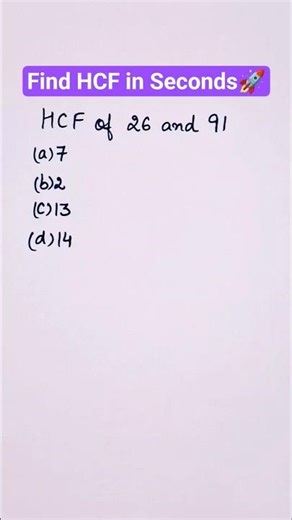 Find HCF in Seconds🚀
HCF of 26 and 91
(a)7
(b)2
(c)13
(d)14